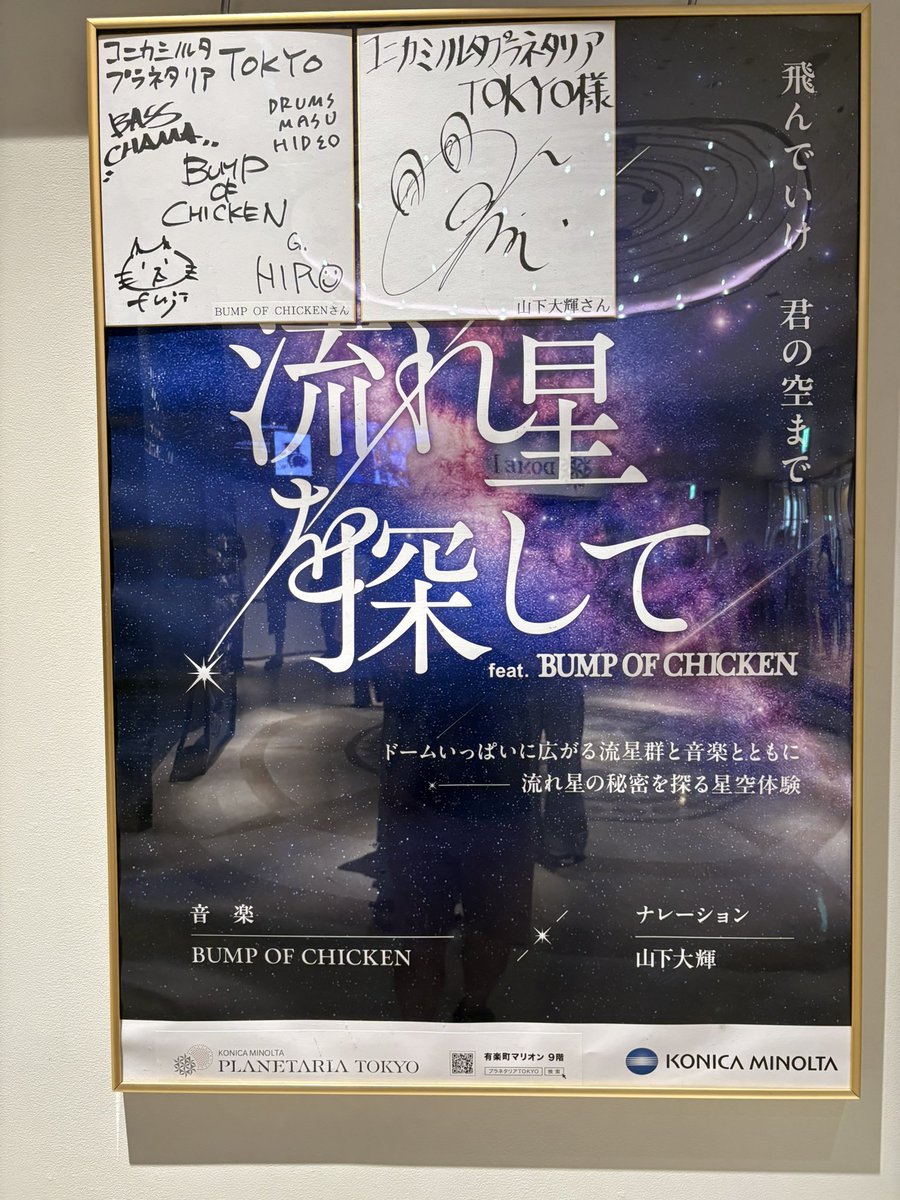 コニカミノルタ
プラネタリア TOKYO
BASS
CHAMA
DRUMS
MASU
HIDEO
BUMP
OF
CHICKEN
fuji
G.
HIRO
BUMP OF CHICKENさん
コニカミノルタプラネタリア
TOKYO様
山下大輝さん
飛んでいけ 君の空まで
流れ星
を探して
feat. BUMP OF CHICKEN
ドームいっぱいに広がる流星群と音楽とともに
流れ星の秘密を探る星空体験
音楽
BUMP OF CHICKEN
ナレーション
山下大輝
KONICA MINOLTA
PLANETARIA TOKYO
有楽町マリオン 9階
プラネタリアTOKYO 検索
KONICA MINOLTA